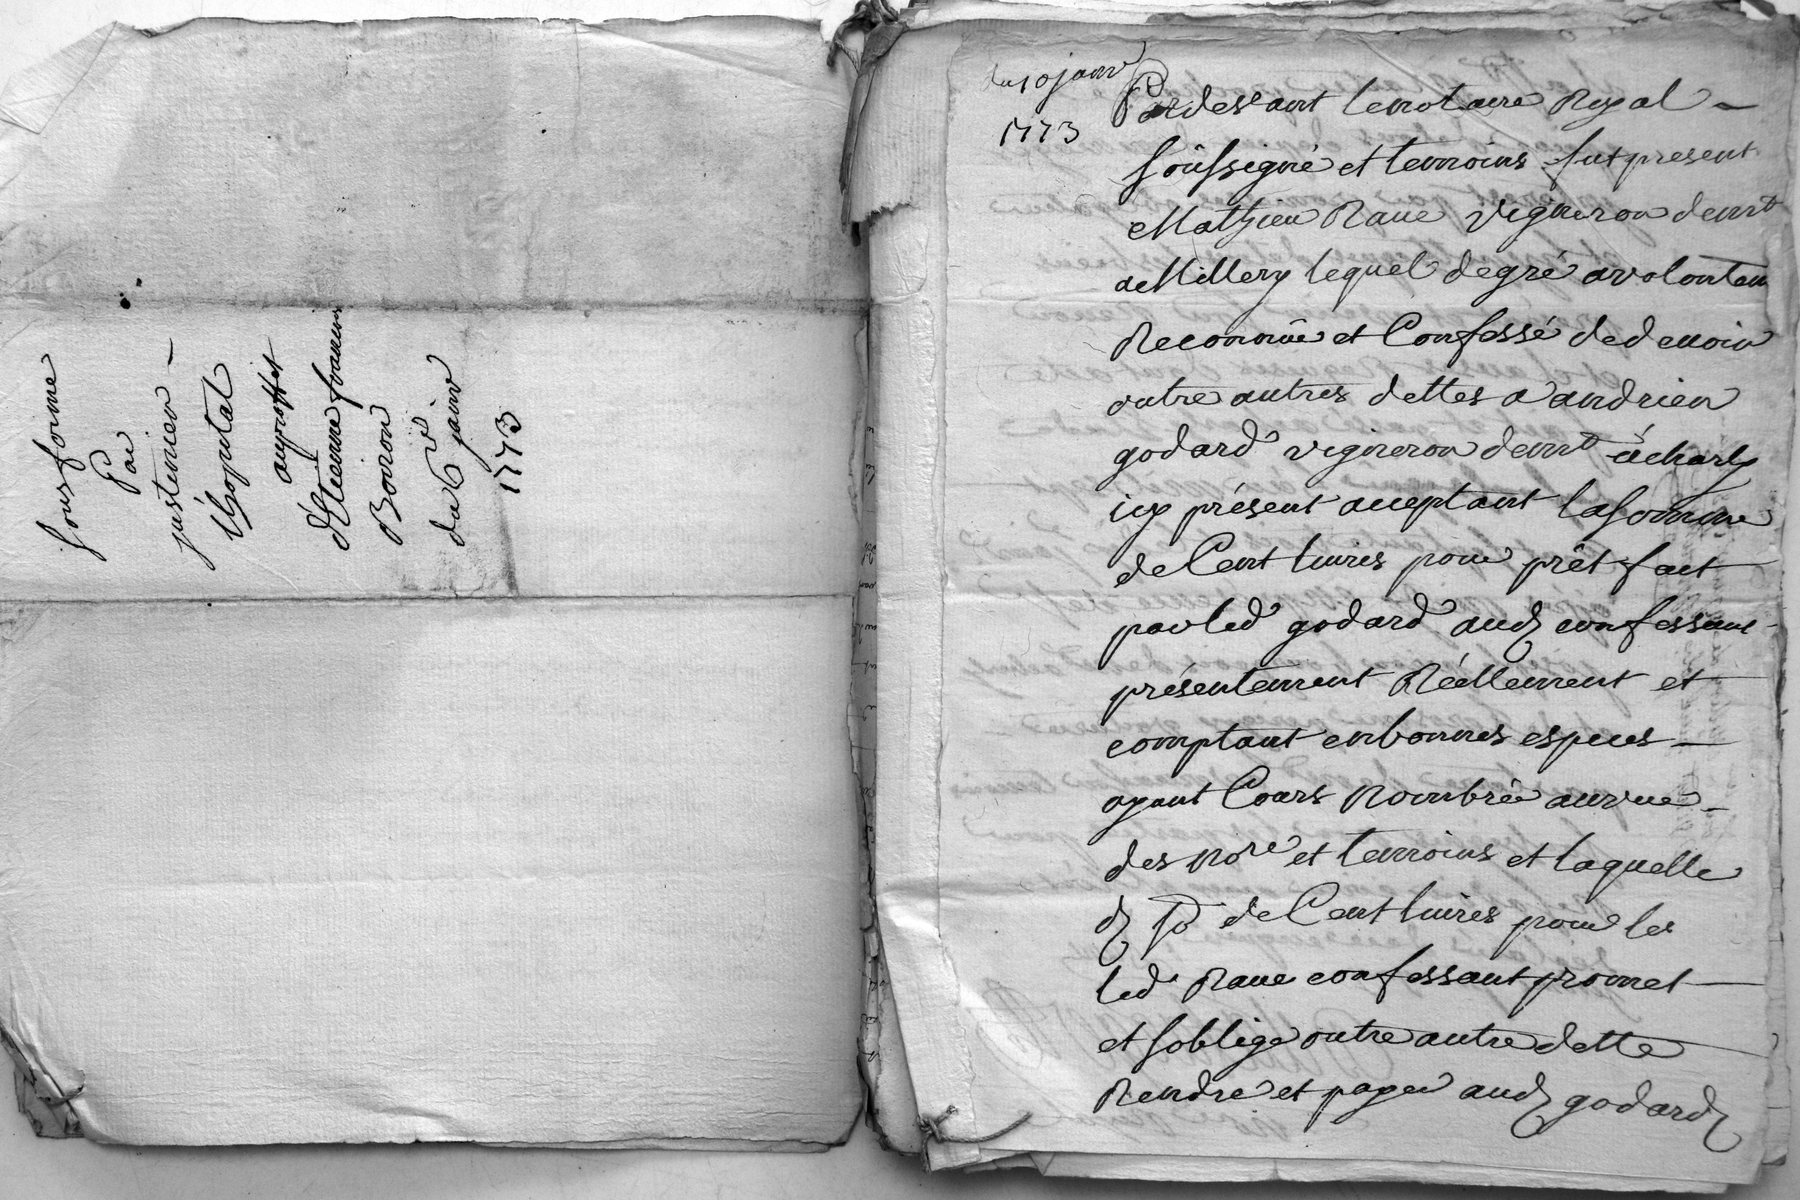 sousferme
Par
justinien
Lhopital
auproffit
d'Etienne francois
Boiron
du 6 janv
1773
du 10 janv
1773
Pardevant le notaire Royal
soussigné et temoins fut present
Mathieu Raue vigneron demt
a Millery lequel de gré a volontem
Reconnû et Confessé de devoir
outre autres dettes a andrien
godard vigneron demt a charly
icy présent acceptant la somme
de Cent livres pour prêt fait
par led godard aud confessant
présentement Réellement et
comptant en bonnes especes
ayant Cours Nombrée au vue
des nore et temoins et laquelle
de Cent livres pour les
led Raue confessant promet
et soblige outre autre dette
Rendre et payer aud godard